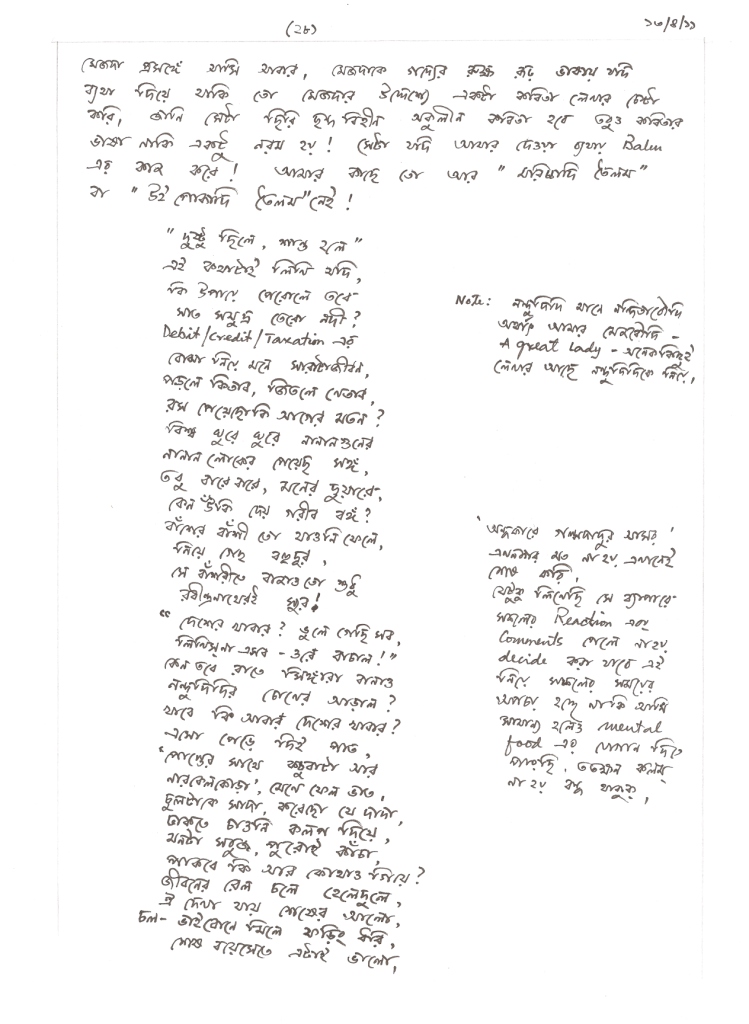 (২৮)
১৩/৪/১১
মেজদা প্রসঙ্গে আসি আবার, মেজদাকে গদ্যের রুক্ষ রূঢ় ভাষায় যদি
ব্যথা দিয়ে থাকি তো মেজদার উদ্দেশ্যে একটা কবিতা লেখার চেষ্টা
করি, জানি সেটা ছিরি ছন্দ বিহীন অকুলীন কবিতা হবে তবুও কবিতার
ভাষা নাকি একটু নরম হয়! সেটা যদি আমার দেওয়া ব্যথায় Balm
এর কাজ করে! আমার কাছে তো আর "মরিচাদি তৈলম"
বা "উই পোকাদি তৈলম" নেই!
"দুষ্টু ছিলে, শান্ত হলে"
এই কথাটাই লিখি যদি,
কি উপায়ে পেরোলে তবে
সাত সমুদ্র তেরো নদী?
Debit/Credit/Taxation এর
বোঝা নিয়ে মনে সারাটাজীবন,
পড়লে কিতাব, জিতলে খেতাব,
রস পেয়েছোকি আগের মতন?
বিশ্ব ঘুরে ঘুরে নানানগুনের
নানান লোকের পেয়েছি সঙ্গ,
তবু বারে বারে, মনের দুয়ারে,
কেন উঁকি দেয় গরীব বঙ্গ?
বাঁশের বাঁশী তো যাওনি ফেলে,
নিয়ে গেছ বহুদূর,
সে বাঁশরীতে বাজাও তো শুধু
রবীন্দ্রনাথেরই সুর!
"দেশের খাবার? ভুলে গেছি সব,
লিখিসনা এসব - ওরে বাচাল!"
কেন তবে রাতে সিঙ্গারা বানাও
নন্দুদিদির চোখের আড়াল?
খাবে কি আবার দেশের খাবার?
এসো পেড়ে দিই পাত,
'পোস্তের সাথে কচুবাটা আর
নারকেলকোড়া', মেখে ফেল ভাত,
চুলটাকে সাদা, করেছো যে দাদা,
ঢাকতে চাওনি কলপ দিয়ে,
মনটা সবুজ, পুরোই কাঁচা,
পাকবে কি আর কোথাও গিয়ে?
জীবনের রেল চলে হেলেদুলে,
ঐ দেখা যায় শেষের আলো,
চল- ভাইবোনে মিলে ফড়িং ধরি,
শেষ বয়েসেতে এটাই ভালো,
Note: নন্দুদিদি মানে নন্দিতাবৌদি
অর্থাৎ আমার মেজবৌদি -
A great Lady - অনেককিছুই
লেখার আছে নন্দুদিদিকে নিয়ে,
'অন্ধকারে গল্পদাদুর আসর'
এখনকার মত না হয় এখানেই
শেষ করি,
যেটুকু লিখেছি সে ব্যাপারে
সকলের Reaction এবং
Comments পেলে না হয়
decide করা যাবে এই
নিয়ে সকলের সময়ের
অপচয় হচ্ছে নাকি আমি
সামান্য হলেও mental
food এর যোগান দিতে
পারছি. ততক্ষন কলম
না হয় বন্ধ থাকুক,